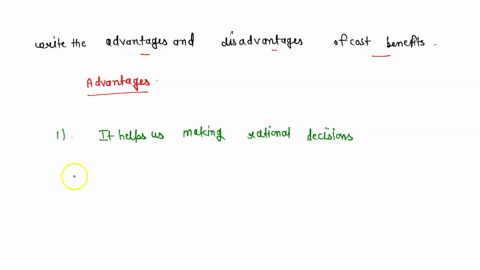 write the advantages and disadvantages of cost benefits.
Advantages.
1). It helps us making rational decisions